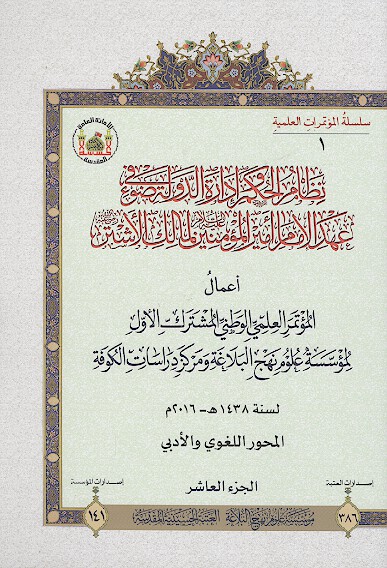 سلسلة المؤتمرات العلمية
١
الأمانة العامة
للعتبة
الحسينية
المقدسة
نظام الحكم وإدارة الدولة في ضوء
عهد الإمام أمير المؤمنين عليه السلام لمالك الأشتر
أعمالُ
المؤتمر العلمي الوطني المشترك الأول
لمؤسسة علوم نهج البلاغة ومركز دراسات الكوفة
لسنة ١٤٣٨هـ - ٢٠١٦م
المحور اللغوي والأدبي
الجزء العاشر
إصدارات العتبة
٣٨٦
إصدارات المؤسسة
١٤١
مؤسسة علوم نهج البلاغة العتبة الحسينية المقدسة